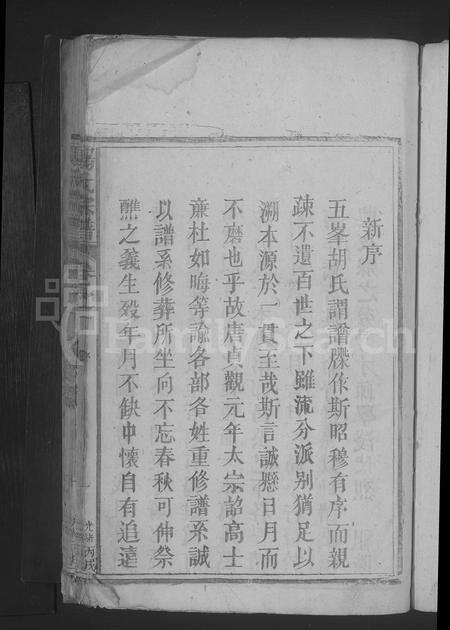 新序
五峯胡氏謂譜牒作斯昭穆有序而親
疎不遺百世之下雖流分派别猶足以
溯本源於一貫至哉斯言誠懸日月而
不磨也乎故唐貞觀元年太宗詔高士
亷杜如晦等諭各部各姓重修譜系誠
以譜系修葬所坐向不忘春秋可伸祭
醮之義生殁年月不缺中懷自有追遠
光緒丙戌
FamilySearch